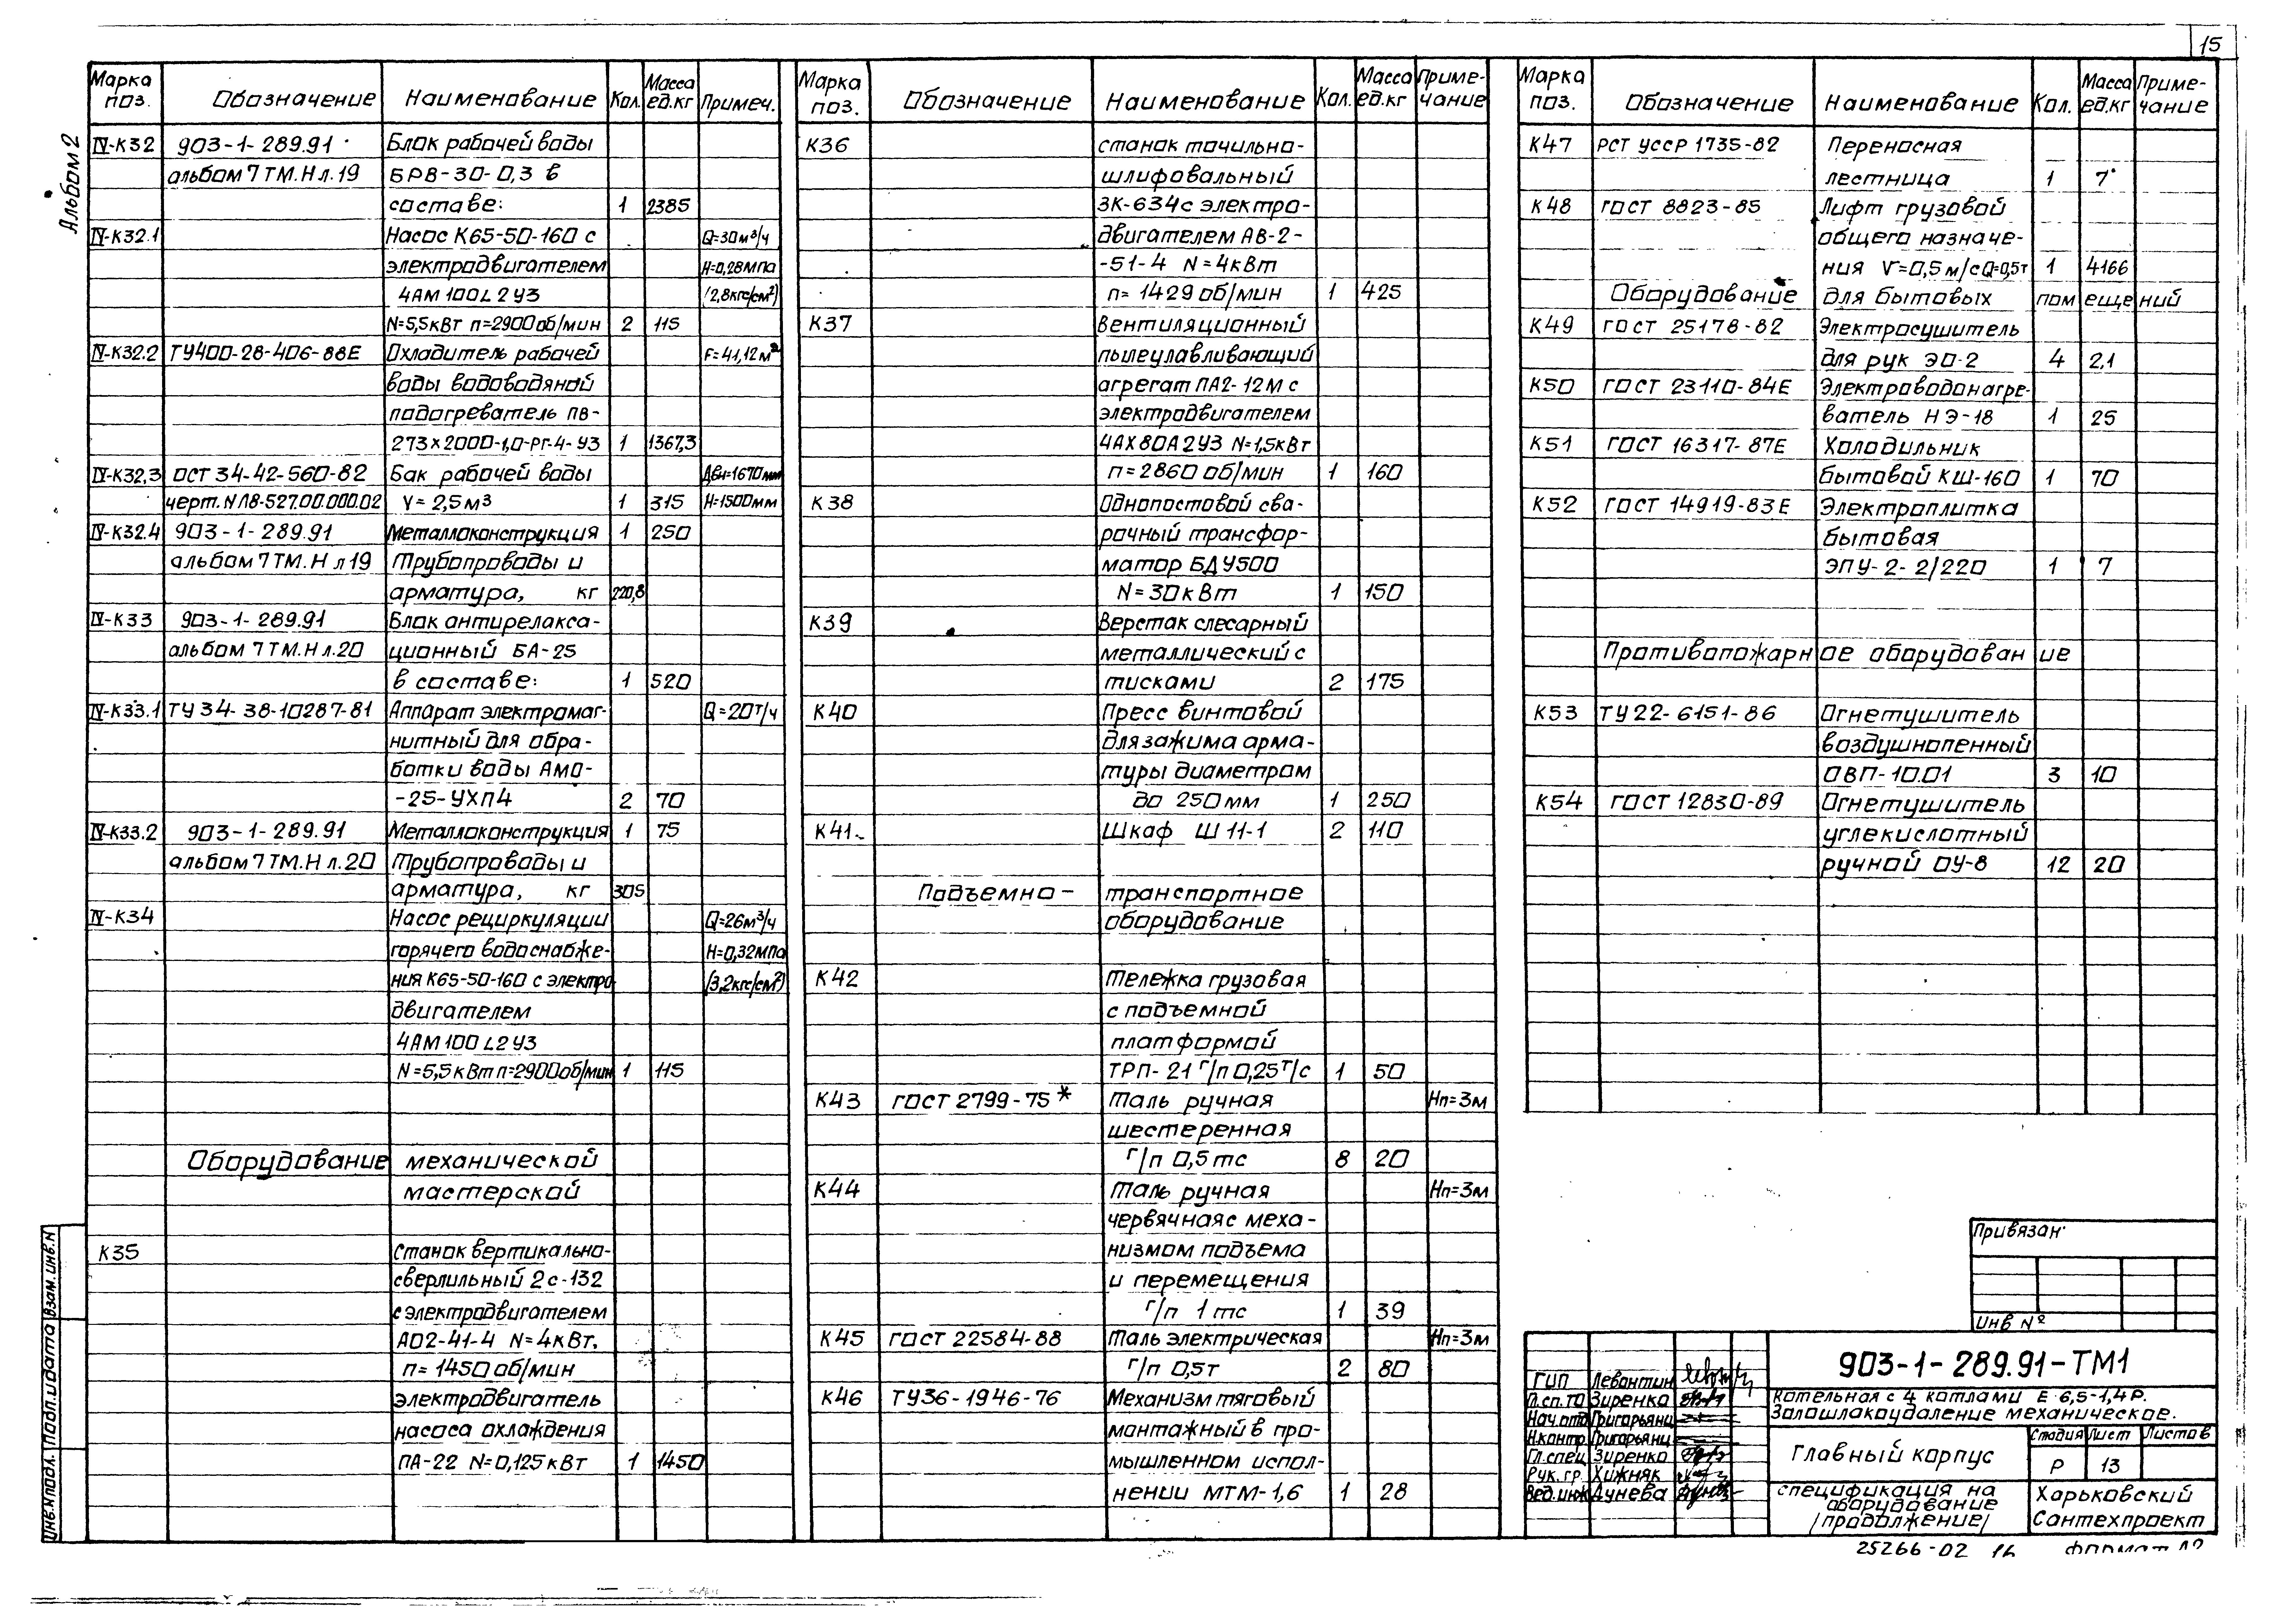 15
Альбом 2
Марка поз. Обозначение Наименование Кол. Масса ед.кг Примеч.
IV-К32 903-1-289.91 Блок рабочей воды
альбом 7 ТМ.Н л.19 БРВ-30-0,3 в
составе: 1 2385
IV-К32.1 Насос К65-50-160 с Q=30м³/ч
электродвигателем Н=0,28МПа
4АМ100L2У3 (2,8кгс/см²)
N=5,5кВт n=2900об/мин 2 115
IV-К32.2 ТУ400-28-406-88Е Охладитель рабочей F=41,12м²
воды водоводяной
подогреватель ПВ-
273х2000-1,0-РГ-4-У3 1 1367,3
IV-К32,3 ОСТ 34-42-560-82 Бак рабочей воды Двн=1670мм
черт.NЛ8-527.00.000.02 V=2,5м³ 1 315 Н=1500мм
IV-К32.4 903-1-289.91 Металлоконструкция 1 250
альбом 7 ТМ.Н л19 Трубопроводы и
арматура, кг 220,8
IV-К33 903-1-289.91 Блок антирелакса-
альбом 7 ТМ.Н л.20 ционный БА-25
в составе: 1 520
IV-К33.1 ТУ34-38-10287-81 Аппарат электромаг- Q=20т/ч
нитный для обра-
ботки воды АМО-
-25-УХЛ4 2 70
IV-К33.2 903-1-289.91 Металлоконструкция 1 75
альбом 7 ТМ.Н л.20 Трубопроводы и
арматура, кг 305
IV-К34 Насос рециркуляции Q=26м³/ч
горячего водоснабже- Н=0,32МПа
ния К65-50-160 с электро (3,2кгс/см²)
двигателем
4АМ100L2У3
N=5,5кВт n=2900об/мин 1 115
Оборудование механической
мастерской
К35 Станок вертикально-
сверлильный 2с-132
с электродвигателем
АО2-41-4 N=4кВт,
n=1450об/мин
электродвигатель
насоса охлаждения
ПА-22 N=0,125кВт 1 1450
Марка поз. Обозначение Наименование Кол. Масса ед.кг Приме-чание
К36 станок точильно-
шлифовальный
3К-634 с электро-
двигателем АВ-2-
-51-4 N=4кВт
n=1429об/мин 1 425
К37 Вентиляционный
пылеулавливающий
агрегат ПА2-12М с
электродвигателем
4АХ80А2У3 N=1,5кВт
n=2860 об/мин 1 160
К38 Однопостовой сва-
рочный трансфор-
матор БДУ500
N=30кВт 1 150
К39 Верстак слесарный
металлический с
тисками 2 175
К40 Пресс винтовой
для зажима арма-
туры диаметром
до 250мм 1 250
К41 Шкаф Ш11-1 2 110
Подъемно- транспортное
оборудование
К42 Тележка грузовая
с подъемной
платформой
ТРП-21 г/п 0,25т/с 1 50
К43 ГОСТ 2799-75* Таль ручная Нп=3м
шестеренная
г/п 0,5тс 8 20
К44 Таль ручная Нп=3м
червячная с меха-
низмом подъема
и перемещения
г/п 1тс 1 39
К45 ГОСТ 22584-88 Таль электрическая Нп=3м
г/п 0,5т 2 80
К46 ТУ36-1946-76 Механизм тяговый
монтажный в про-
мышленном испол-
нении МТМ-1,6 1 28
Марка поз. Обозначение Наименование Кол. Масса ед.кг Приме-чание
К47 РСТ УССР 1735-82 Переносная
лестница 1 7
К48 ГОСТ 8823-85 Лифт грузовой
общего назначе-
ния V=0,5м/с Q=0,5т 1 4166
Оборудование для бытовых помещений
К49 ГОСТ 25178-82 Электросушитель
для рук ЭО-2 4 2,1
К50 ГОСТ 23110-84Е Электроводонагре-
ватель НЭ-18 1 25
К51 ГОСТ 16317-87Е Холодильник
бытовой КШ-160 1 70
К52 ГОСТ 14919-83Е Электроплитка
бытовая
ЭПУ-2-2/220 1 7
Противопожарное оборудование
К53 ТУ22-6151-86 Огнетушитель
воздушнопенный
ОВП-10.01 3 10
К54 ГОСТ 12830-89 Огнетушитель
углекислотный
ручной ОУ-8 12 20
Привязан:
Инв №
903-1-289.91-ТМ1
Котельная с 4 котлами Е-6,5-1,4Р.
Золошлакоудаление механическое.
ГИП Левантин
Гл.сп.ТО Зиренко
Нач.отд Григорьянц
Н.контр. Григорьянц
Гл.спец Зиренко
Рук.гр. Хижняк
Вед.инж Дунева
Главный корпус
Стадия Лист Листов
Р 13
спецификация на
оборудование
/продолжение/
Харьковский
Сантехпроект
25266-02 16 Формат А2
Инв.N подл. Подп. и дата Взам.инв.N